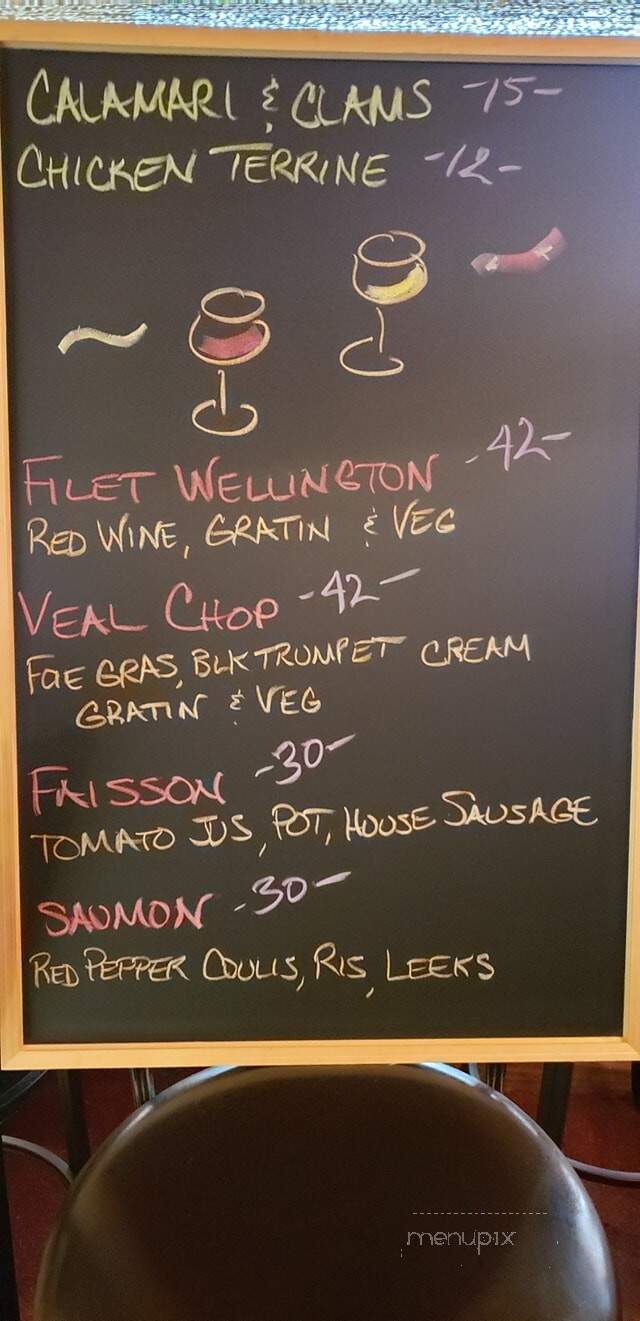 CALAMARI & CLAMS -15-
CHICKEN TERRINE -12-
FILET WELLINGTON -42-
RED WINE, GRATIN & VEG
VEAL CHOP -42-
FOE GRAS, BLK TRUMPET CREAM
GRATIN & VEG
FAISSON -30-
TOMATO JUS, POT, HOUSE SAUSAGE
SAUMON -30-
RED PEPPER COULIS, RIS, LEEKS
menupix